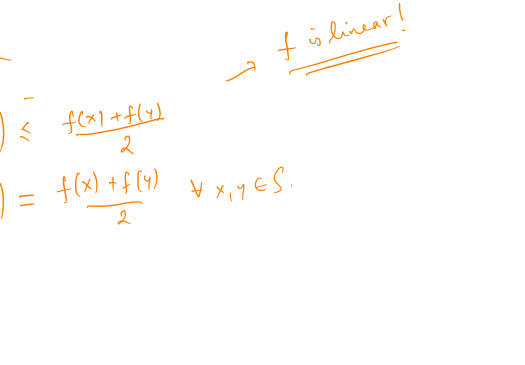 → f is linear!
) ≤ f(x) + f(y) / 2
) = f(x) + f(y) / 2 ∀ x, y ∈ S.